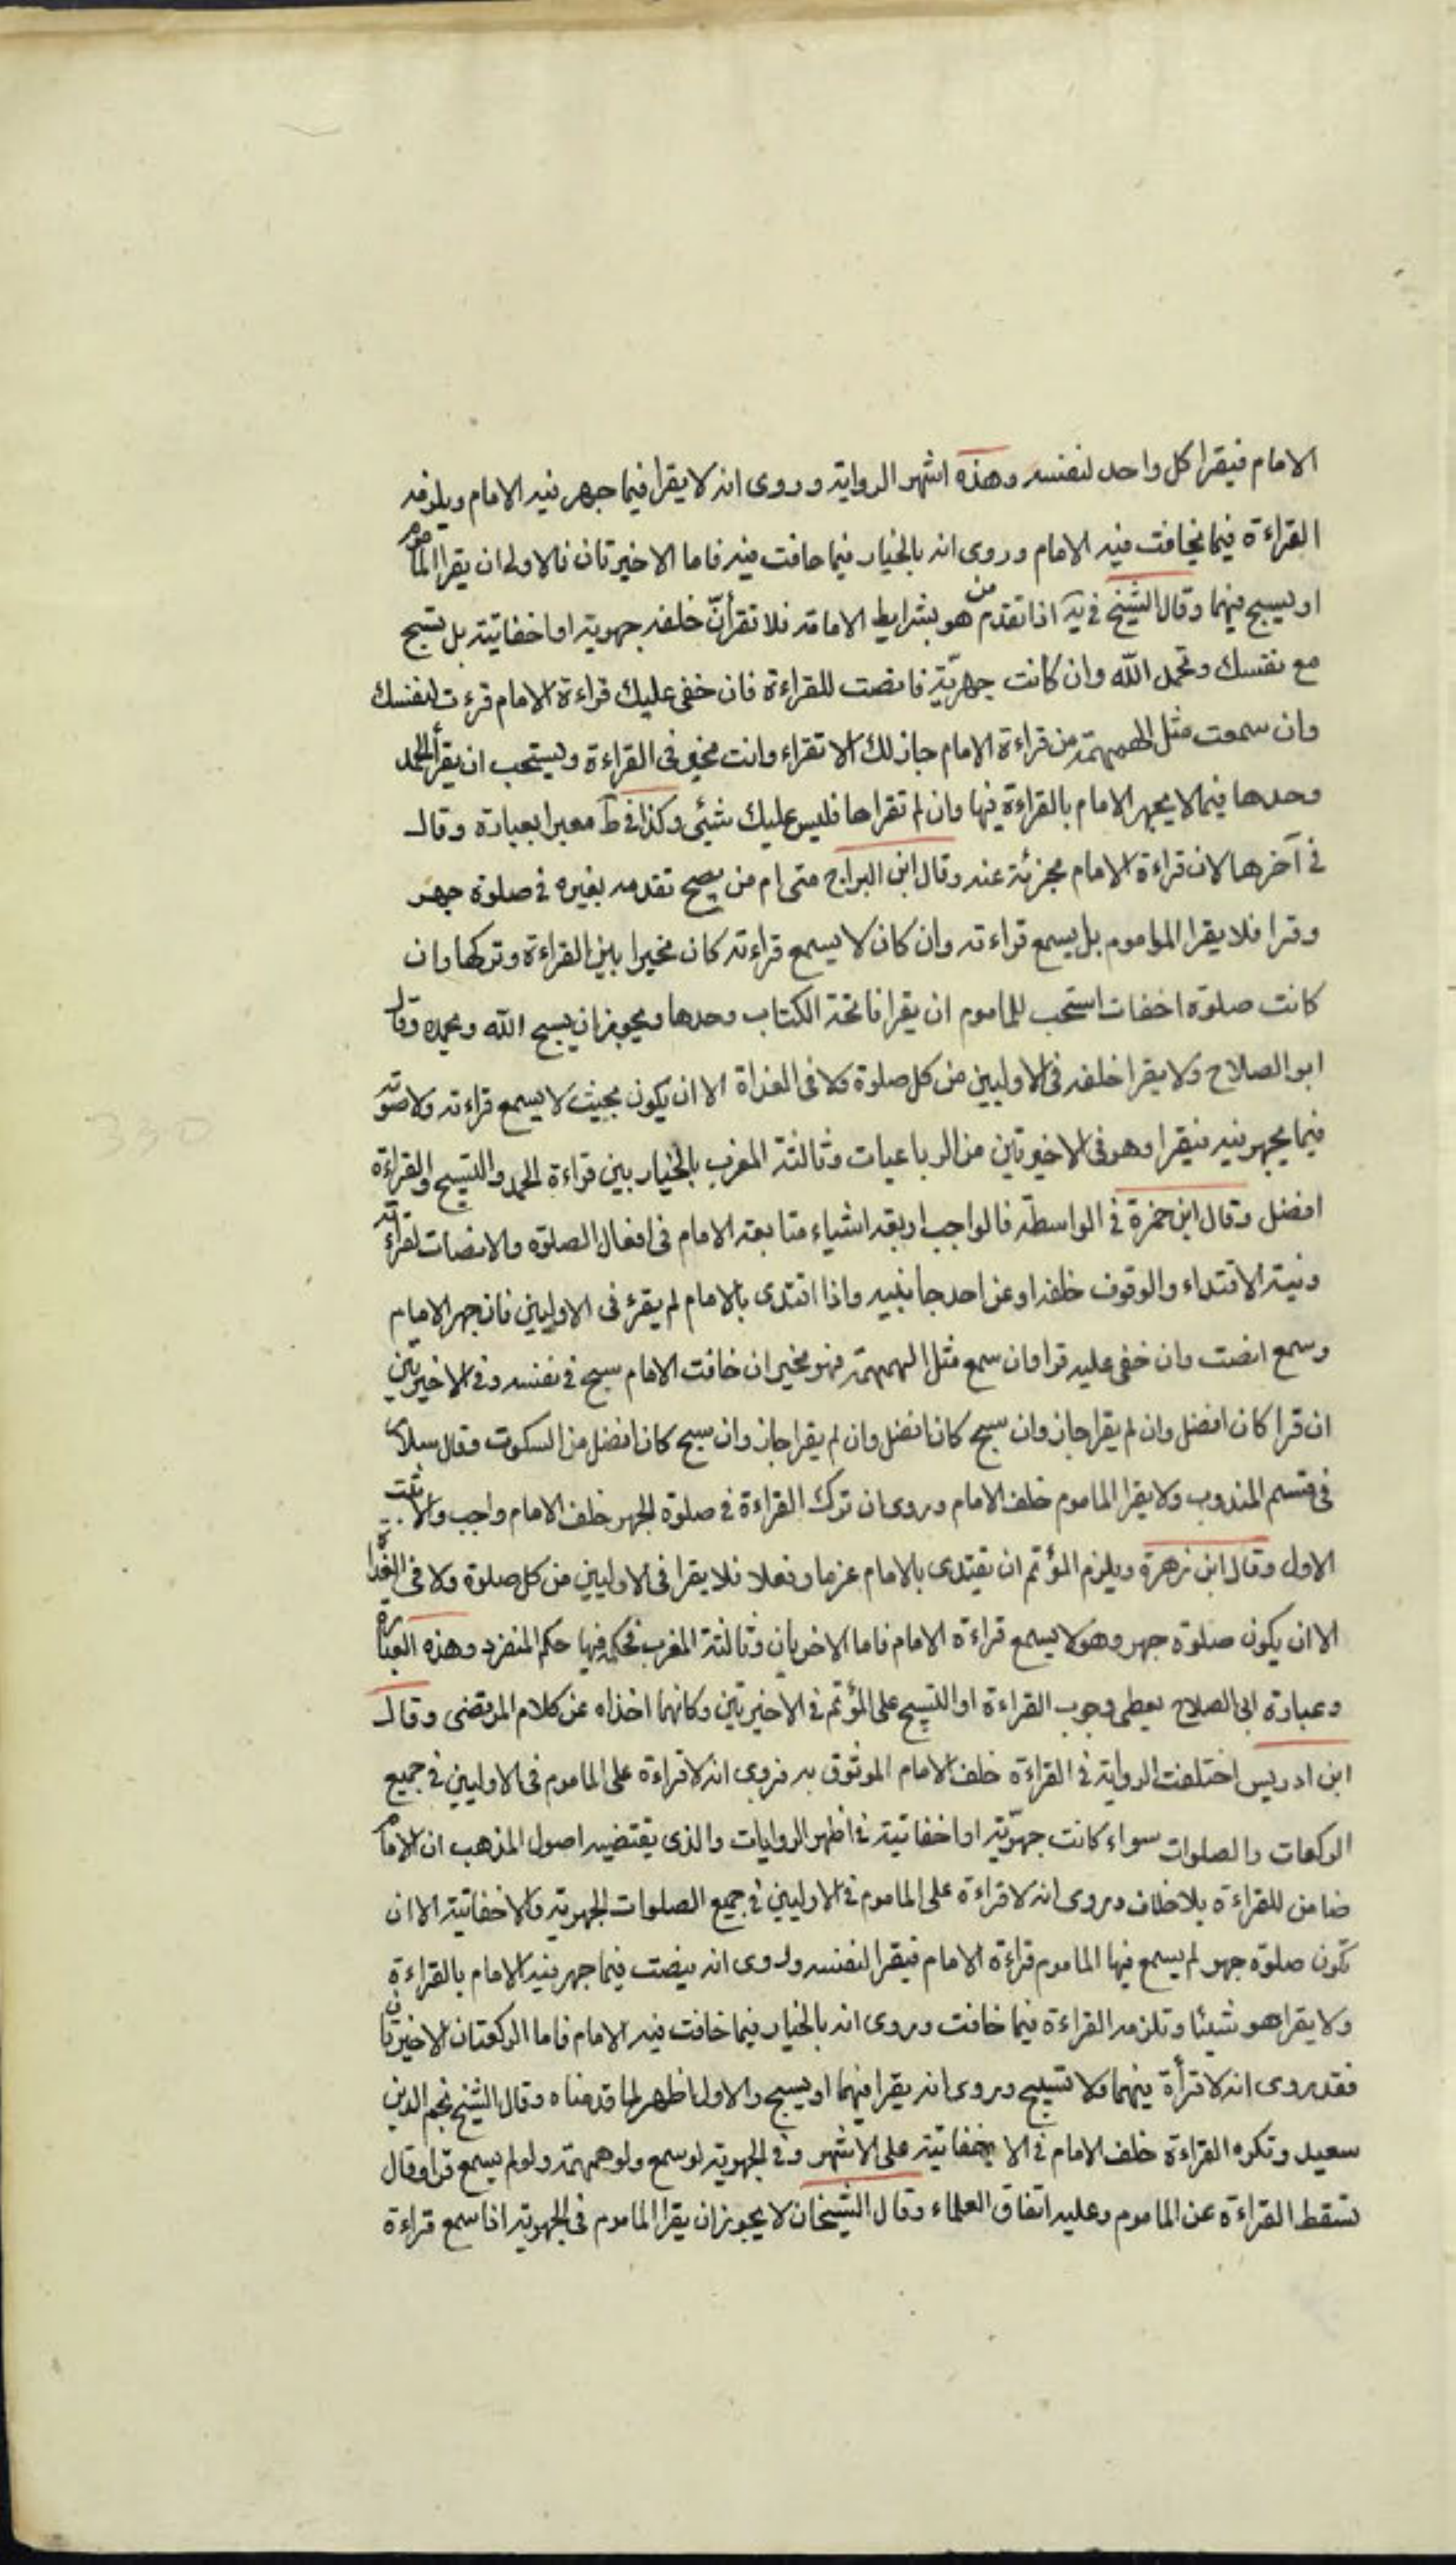 الامام فيقرا كل واحد لنفسه وهذه اشهر الرواية وروى انه لا يقرا فيما جهر فيه الامام ويلزمه
القراءة فيما يخافت فيه الامام وروى انه بالخيار فيما خافت فيه فاما الاخيرتان فالاولى ان يقرا الماموم
او يسبح فيهما وقال الشيخ في يه اذا تقدم من هو بشرايط الامامة فلا تقرأنّ خلفه جهرية او اخفاتية بل تسبح
مع نفسك وتحمد الله وان كانت جهريّة فانصت للقراءة فان خفى عليك قراءة الامام قرءت لنفسك
وان سمعت مثل الهمهمة من قراءة الامام جاز لك الا تقراء وانت مخير فى القراءة ويستحب ان يقرأ الحمد
وحدها فيما لا يجهر الامام بالقراءة فيها وان لم تقراها فليس عليك شيئ وكذا في ط معبرا بعبارة وقال
في آخرها لان قراءة الامام مجزئة عنه وقال ابن البراج متى ام من يصح تقدمه بغيره في صلوة جهر
وقرا فلا يقرا الماموم بل يسمع قراءته وان كان لا يسمع قراءته كان مخيرا بين القراءة وتركها وان
كانت صلوة اخفات استحب للماموم ان يقرا فاتحة الكتاب وحدها ويجوز ان يسبح الله ويحمده وقال
ابو الصلاح ولا يقرا خلفه فى الاوليين من كل صلوة ولا فى الغداة الا ان يكون بحيث لا يسمع قراءته ولا صوته
فيما يجهر فيه فيقرا وهو فى الاخيرتين من الرباعيات وثالثة المغرب بالخيار بين قراءة الحمد والتسبيح والقراءة
افضل وقال ابن حمزة في الواسطة فالواجب اربعة اشياء متابعة الامام فى افعال الصلوة والانصات لقراءته
ونية الاقتداء والوقوف خلفه او عن احد جانبيه واذا اقتدى بالامام لم يقرء فى الاوليين فان جهر الامام
وسمع انصت وان خفى عليه قرا وان سمع مثل الهمهمة فهو مخير ان خافت الامام سبح في نفسه وفى الاخيرتين
ان قرا كان افضل وان لم يقرا جاز وان سبح كان افضل وان لم يقرا جاز وان سبح كان افضل من السكوت وقال سلار
فى قسم المندوب ولا يقرا الماموم خلف الامام وروى ان ترك القراءة في صلوة الجهر خلف الامام واجب والاثبت
الاول وقال ابن زهرة ويلزم المؤتم ان يقتدى بالامام عزما وفعلا فلا يقرا فى الاوليين من كل صلوة ولا فى الغداة
الا ان يكون صلوة جهر وهو لا يسمع قراءة الامام فاما الاخريان وثالثة المغرب فحكمه فيها حكم المنفرد وهذه العبارة
وعبارة ابى الصلاح يعطى وجوب القراءة او التسبيح على المؤتم فى الاخيرتين وكانهما اخذاه عن كلام المرتضى وقال
ابن ادريس اختلفت الرواية في القراءة خلف الامام الموثوق به فروى انه لا قراءة على الماموم فى الاوليين في جميع
الركعات والصلوات سواء كانت جهريّة او اخفاتية في اظهر الروايات والذى يقتضيه اصول المذهب ان الامام
ضامن للقراءة بلا خلاف وروى انه لا قراءة على الماموم في الاوليين في جميع الصلوات الجهرية والاخفاتية الا ان
تكون صلوة جهر لم يسمع فيها الماموم قراءة الامام فيقرا لنفسه وروى انه ينصت فيما جهر فيه الامام بالقراءة
ولا يقرا هو شيئا وتلزمه القراءة فيما خافت وروى انه بالخيار فيما خافت فيه الامام فاما الركعتان الاخيرتان
فقد روى انه لا قرأة فيهما ولا تسبيح وروى انه يقرا فيهما او يسبح والاول اظهر لما قدمناه وقال الشيخ نجم الدين
سعيد وتكره القراءة خلف الامام في الاخفاتية على الاشهر وفي الجهرية لو سمع ولو همهمة ولو لم يسمع قرا وقال
تسقط القراءة عن الماموم وعليه اتفاق العلماء وقال الشيخان لا يجوز ان يقرا الماموم فى الجهرية اذا سمع قراءة
330